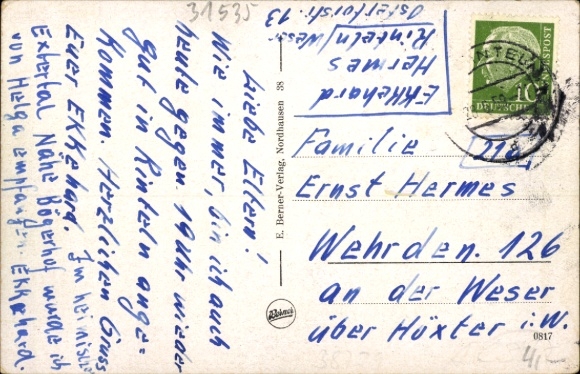 31535
Liebe Eltern!
Wie immer, bin ich auch
heute gegen 19 Uhr wieder
gut in Rinteln ange=
kommen. Herzlichen Gruss
Euer Ekkehard.
Im heimischen
Extertal Nähe Bögerhof wurde ich
von Helga empfangen. Ekkehard.
E. Berner-Verlag, Nordhausen 38
Berner
Ekkehard
Hermes
Rinteln/Weser
Ostertorstr. 13
10
DEUTSCHE BUNDESPOST
RINTELN
21a
Familie
Ernst Hermes
Wehrden. 126
an der Weser
über Höxter i. W.
0817
4,-